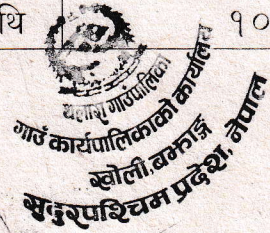 थि १०
थलारा गाउँपालिका
गाउँ कार्यपालिकाको कार्यालय
खोली, बझाङ्ग
सुदुरपश्चिम प्रदेश, नेपाल